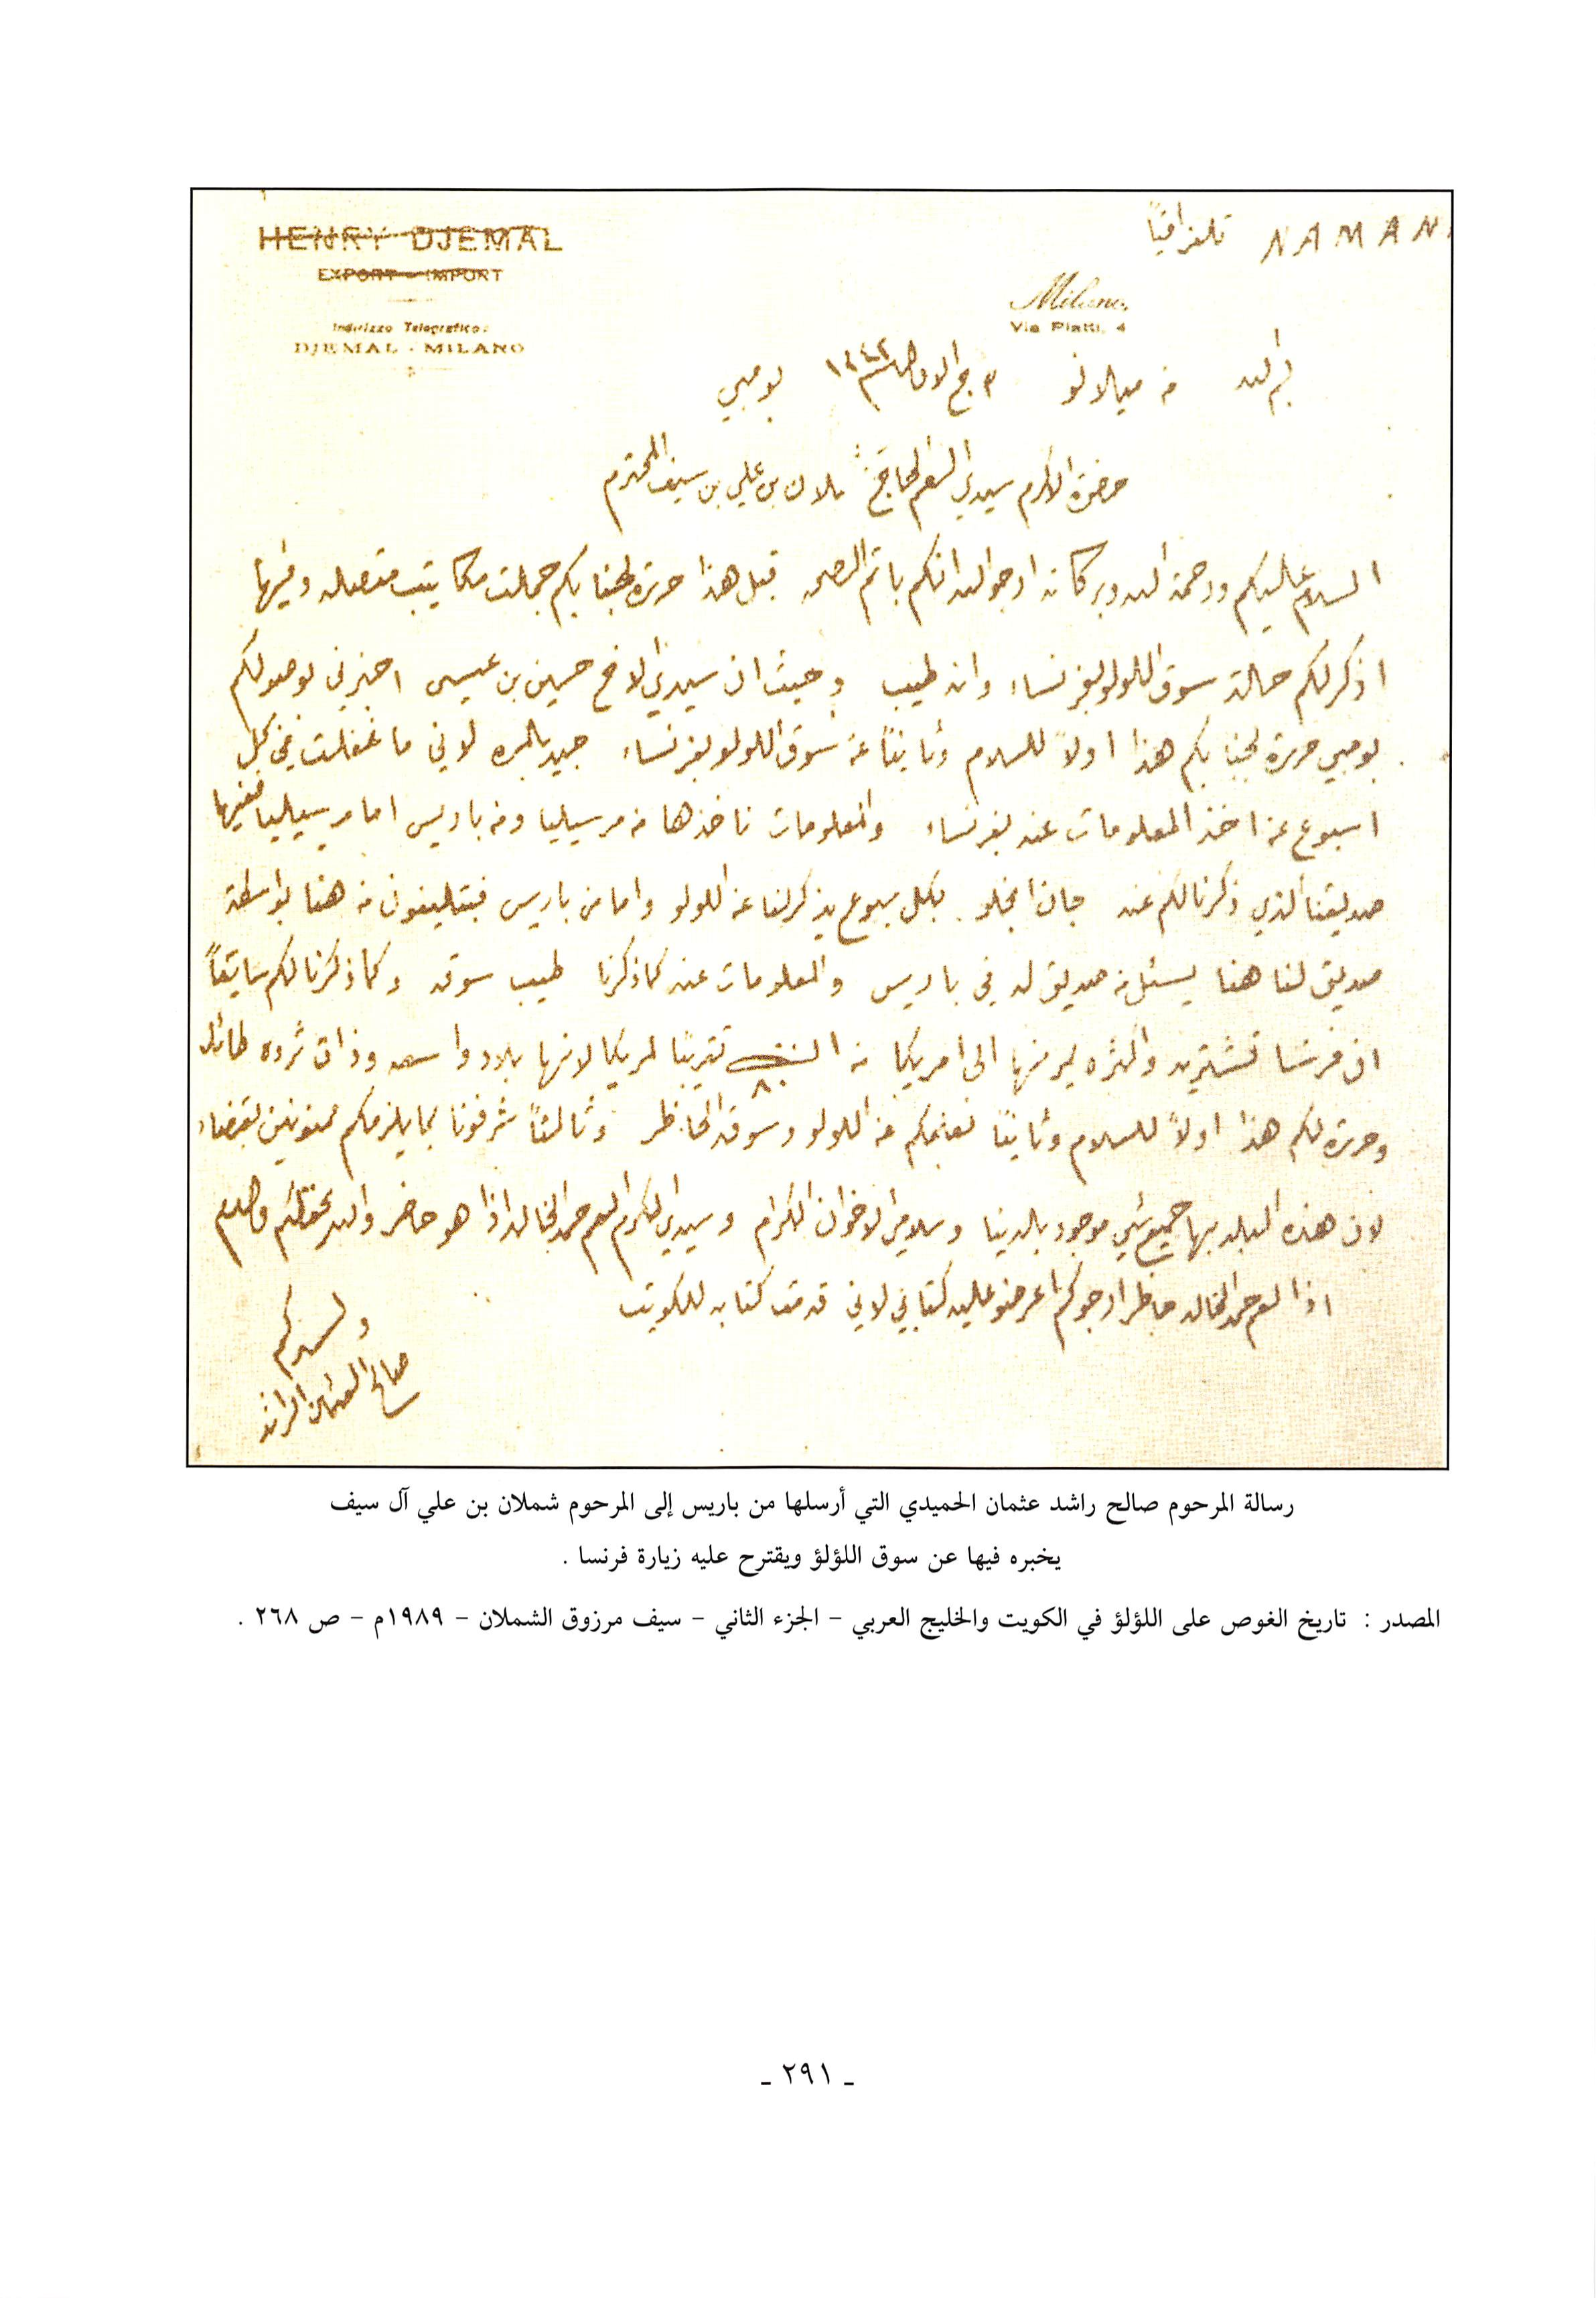 HENRY DJEMAL
EXPORT - IMPORT
Indirizzo Telegrafico:
DJEMAL - MILANO
NAMAN تلغرافياً
Milano,
Via Piatti, 4
من ميلانو ٣ ج الاول سنة ١٣٤٢ بومبي
حضرة الاكرم سيدي العم الحاج شملان بن علي بن سيف المحترم
السلام عليكم ورحمة الله وبركاته ارجو الله انكم باتم الصحه قبل هذا حررة لجنابكم جملت مكاتيب متصله وفيها
اذكر لكم حالة سوق اللولو بفرنساء وانه طيب وحيث ان سيدي الاخ حسين بن عيسى اخبرني بوصولكم
بومبي حررة لجنابكم هذا اولاً للسلام وثانيتاً عن سوق اللولو بفرنساء جيد بالمره لاني ما غفلت في كل
اسبوع عن اخذ المعلومات عنه بفرنساء والمعلومات ناخذها من مرسيليا ومن باريس اما مرسيليا ففيها
صديقنا الذي ذكرنا لكم عنه جان انجلو بكل سبوع يذكر لنا عن اللولو واما من باريس فبتليفون من هنا بواسطة
صديق لنا هنا يسئل من صديق له في باريس والمعلومات عنه كما ذكرنا طيب سوقه وكما ذكرنا لكم سابقاً
ان فرنسا تشتريه واكثره يمر منها الى امريكا من ٨٠ تقريبًا لمريكا لانها بلاد واسعه وذات ثروه طائله
وحررة لكم هذا اولاً للسلام وثانيتاً نعلمكم عن اللولو وسوقه الحاظر وثالثاً شرفونا بما يلزمكم ممنونين بقضاء
لان هذه البلد بها جميع شي موجود بالدنيا وسلامي الاخوان الكرام وسيدي المكرم العم حمد الخالد اذا هو حاضر والله يحفظكم
اذا العم حمد الخالد حاظر ارجوكم اعرضو عليه كتابي لاني قدمت كتابه للكويت
صالح العثمان الراشد
رسالة المرحوم صالح راشد عثمان الحميدي التي أرسلها من باريس إلى المرحوم شملان بن علي آل سيف
يخبره فيها عن سوق اللؤلؤ ويقترح عليه زيارة فرنسا .
المصدر : تاريخ الغوص على اللؤلؤ في الكويت والخليج العربي – الجزء الثاني – سيف مرزوق الشملان – ١٩٨٩م – ص ٢٦٨ .
ـ ٢٩١ ـ